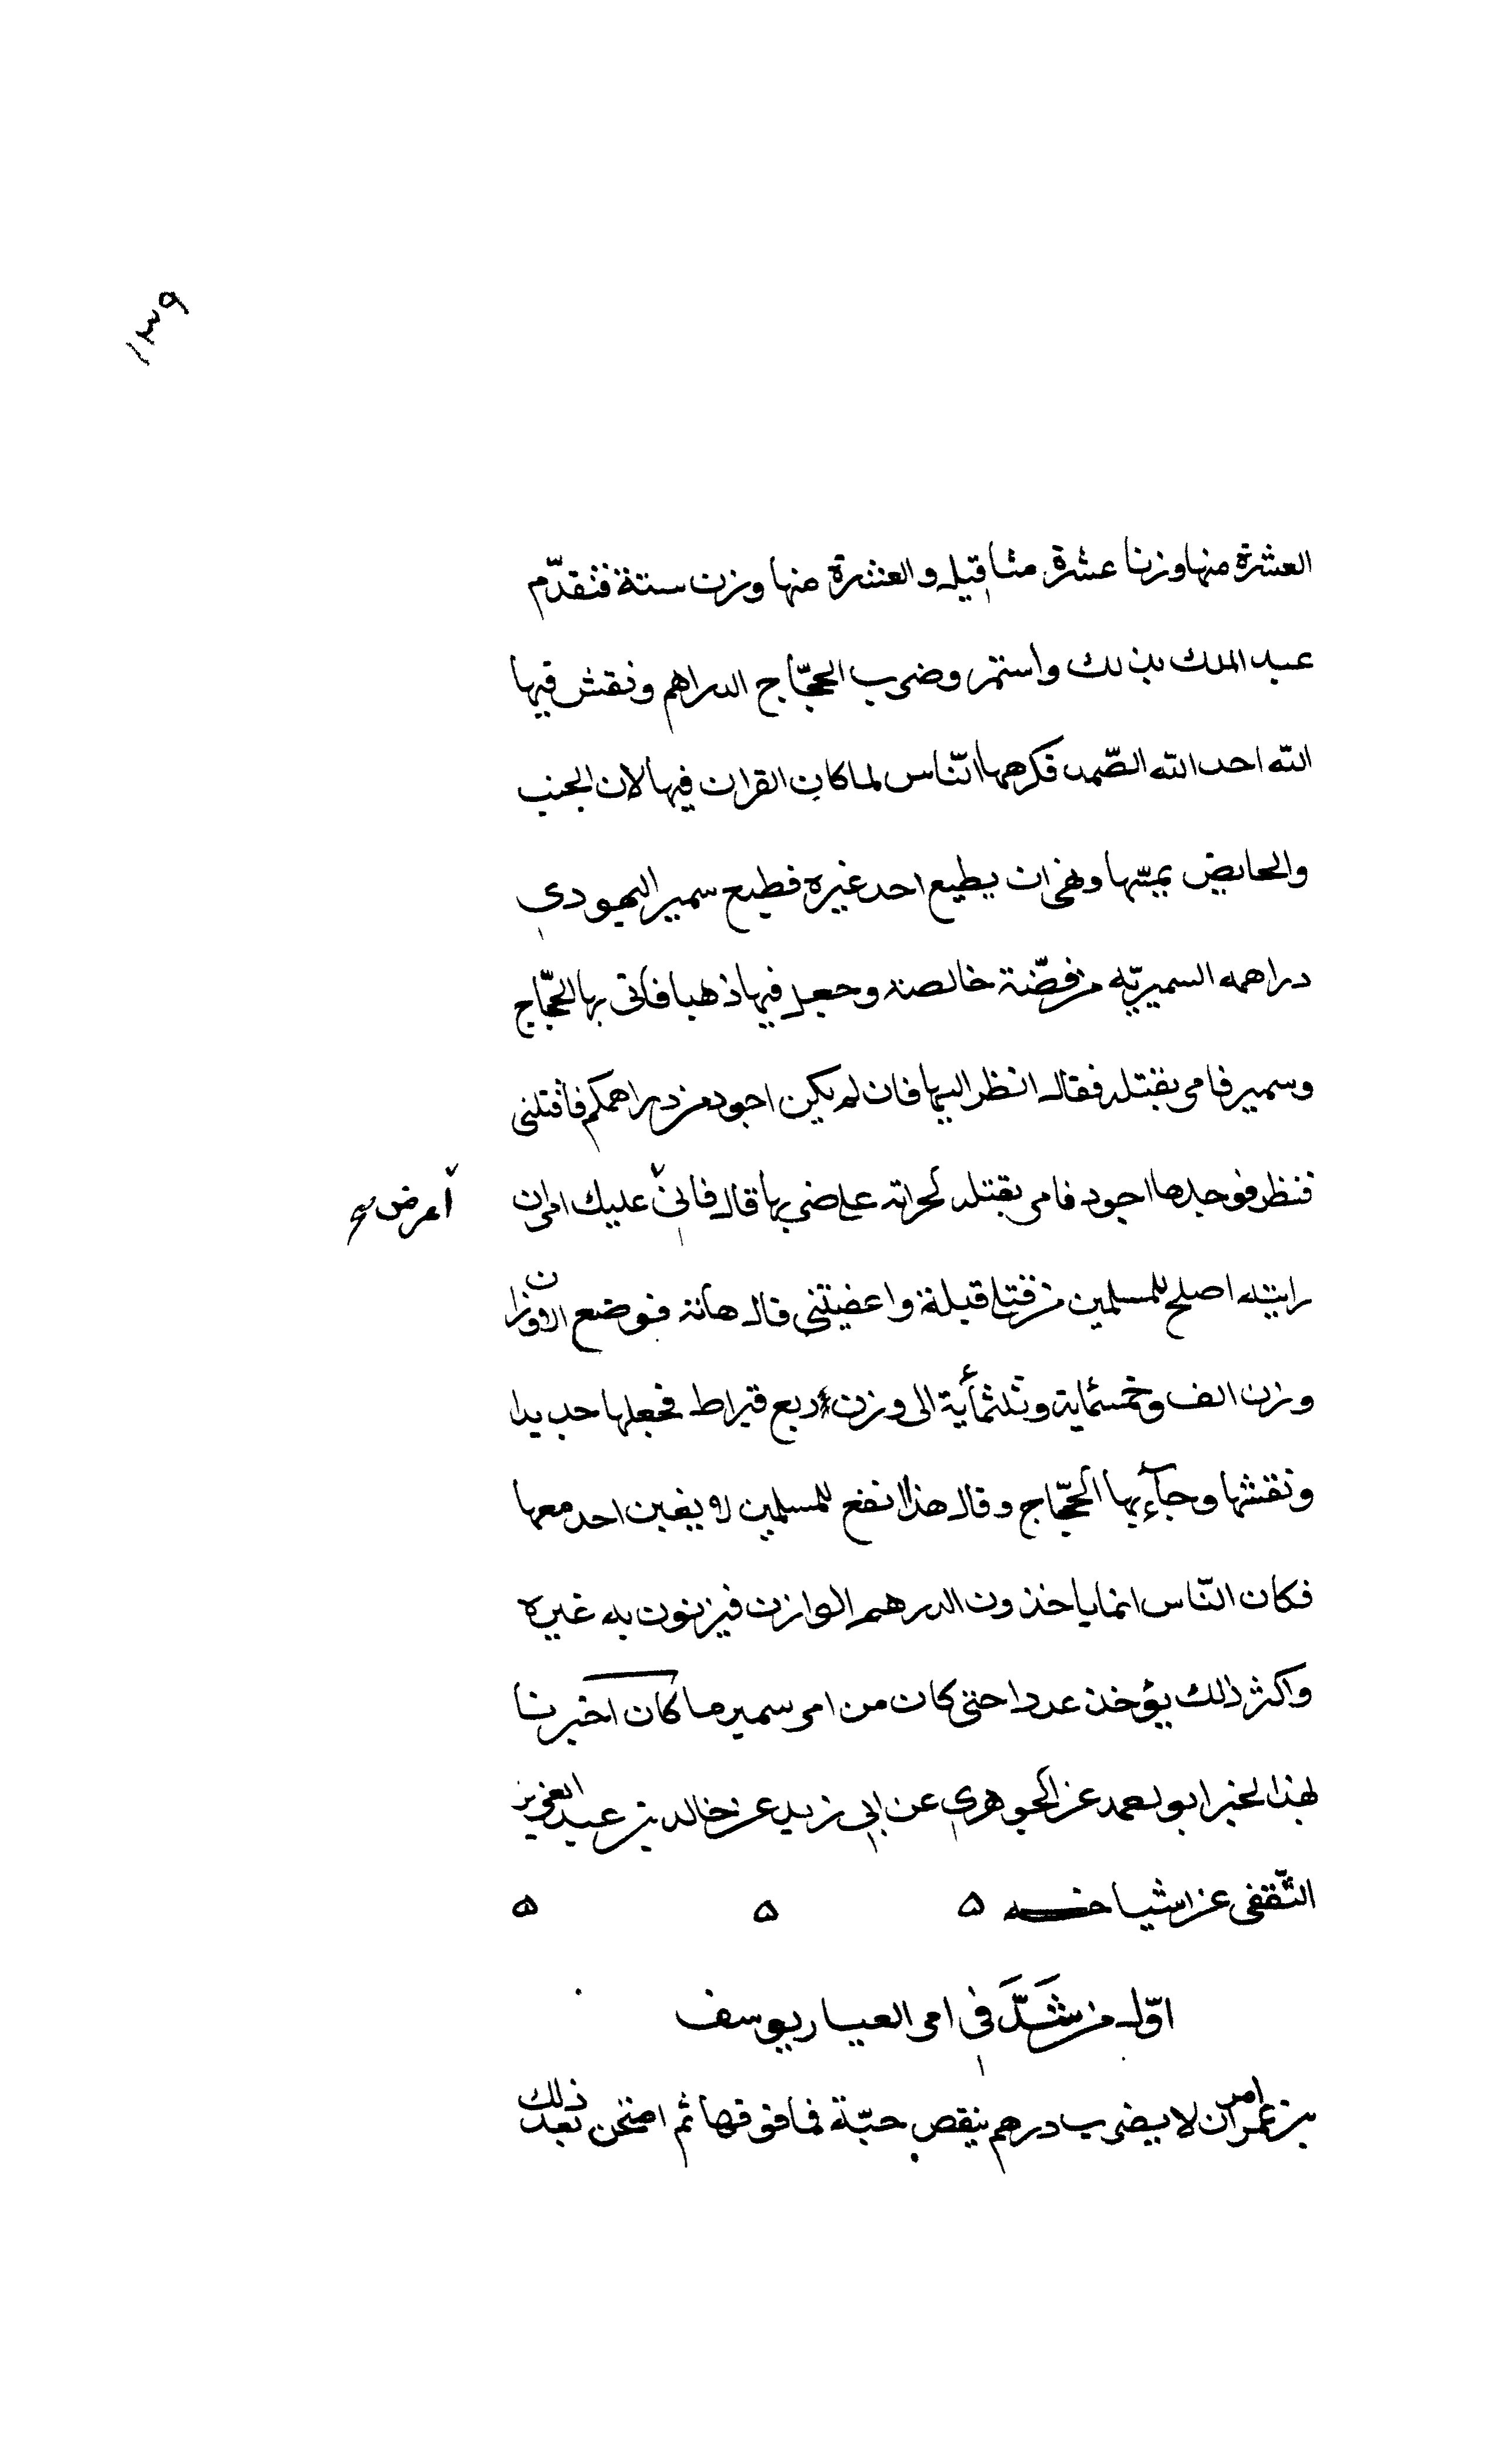 ١٣٩
العشرة منها وزنا عشرة مثاقيل والعشرة منها وزن ستة فتقدّم
عبد الملك بذلك واستمر وضرب الحجّاج الدراهم ونقش فيها
الله احد الله الصّمد فكرهها النّاس لما كان القران فيها لان الجنب
والحايض يمسّها ونهى ان يطبع احد غيره فطبع سمير اليهودي
دراهمه السميريّه من فضّة خالصة وجعل فيها ذهبا فاتى بها الحجّاج
وسمير فامر بقتله فقال انظر اليها فان لم يكن اجود من دراهمكم فاقتلنى
فنظر فوجدها اجود فامر بقتله لجراته على ضربها قال فانىّ عليك امرا ان
اعرض صح
رايته اصلح للمسلمين من قتلى قبلة واعفيتنى قال هاته فوضع الاوزان
وزن الف وخمسئماية وثلثمأية الى وزن ربع قيراط فجعلها حديدا
ونقشها وجآء بها الحجّاج وقال هذا انفع للمسلمين لا يغبن احد معها
فكان النّاس انما ياخذون الدرهم الوازن فيزنون به غيره
واكثر ذلك يؤخذ عددا حتى كان من امر سمير ما كان اخبرنا
بهذا الخبر ابو احمد عن الجوهرى عن ابى زيد عن خالد بن عبد العزيز
الثّقفى عن اشياخه ه ه ه
اوّل من شَدَّدَ فى امر العيار يوسف
بن عمر امر ان لا يضرب درهم ينقص حبّة فما فوقها ثم امتحن بعد ذلك